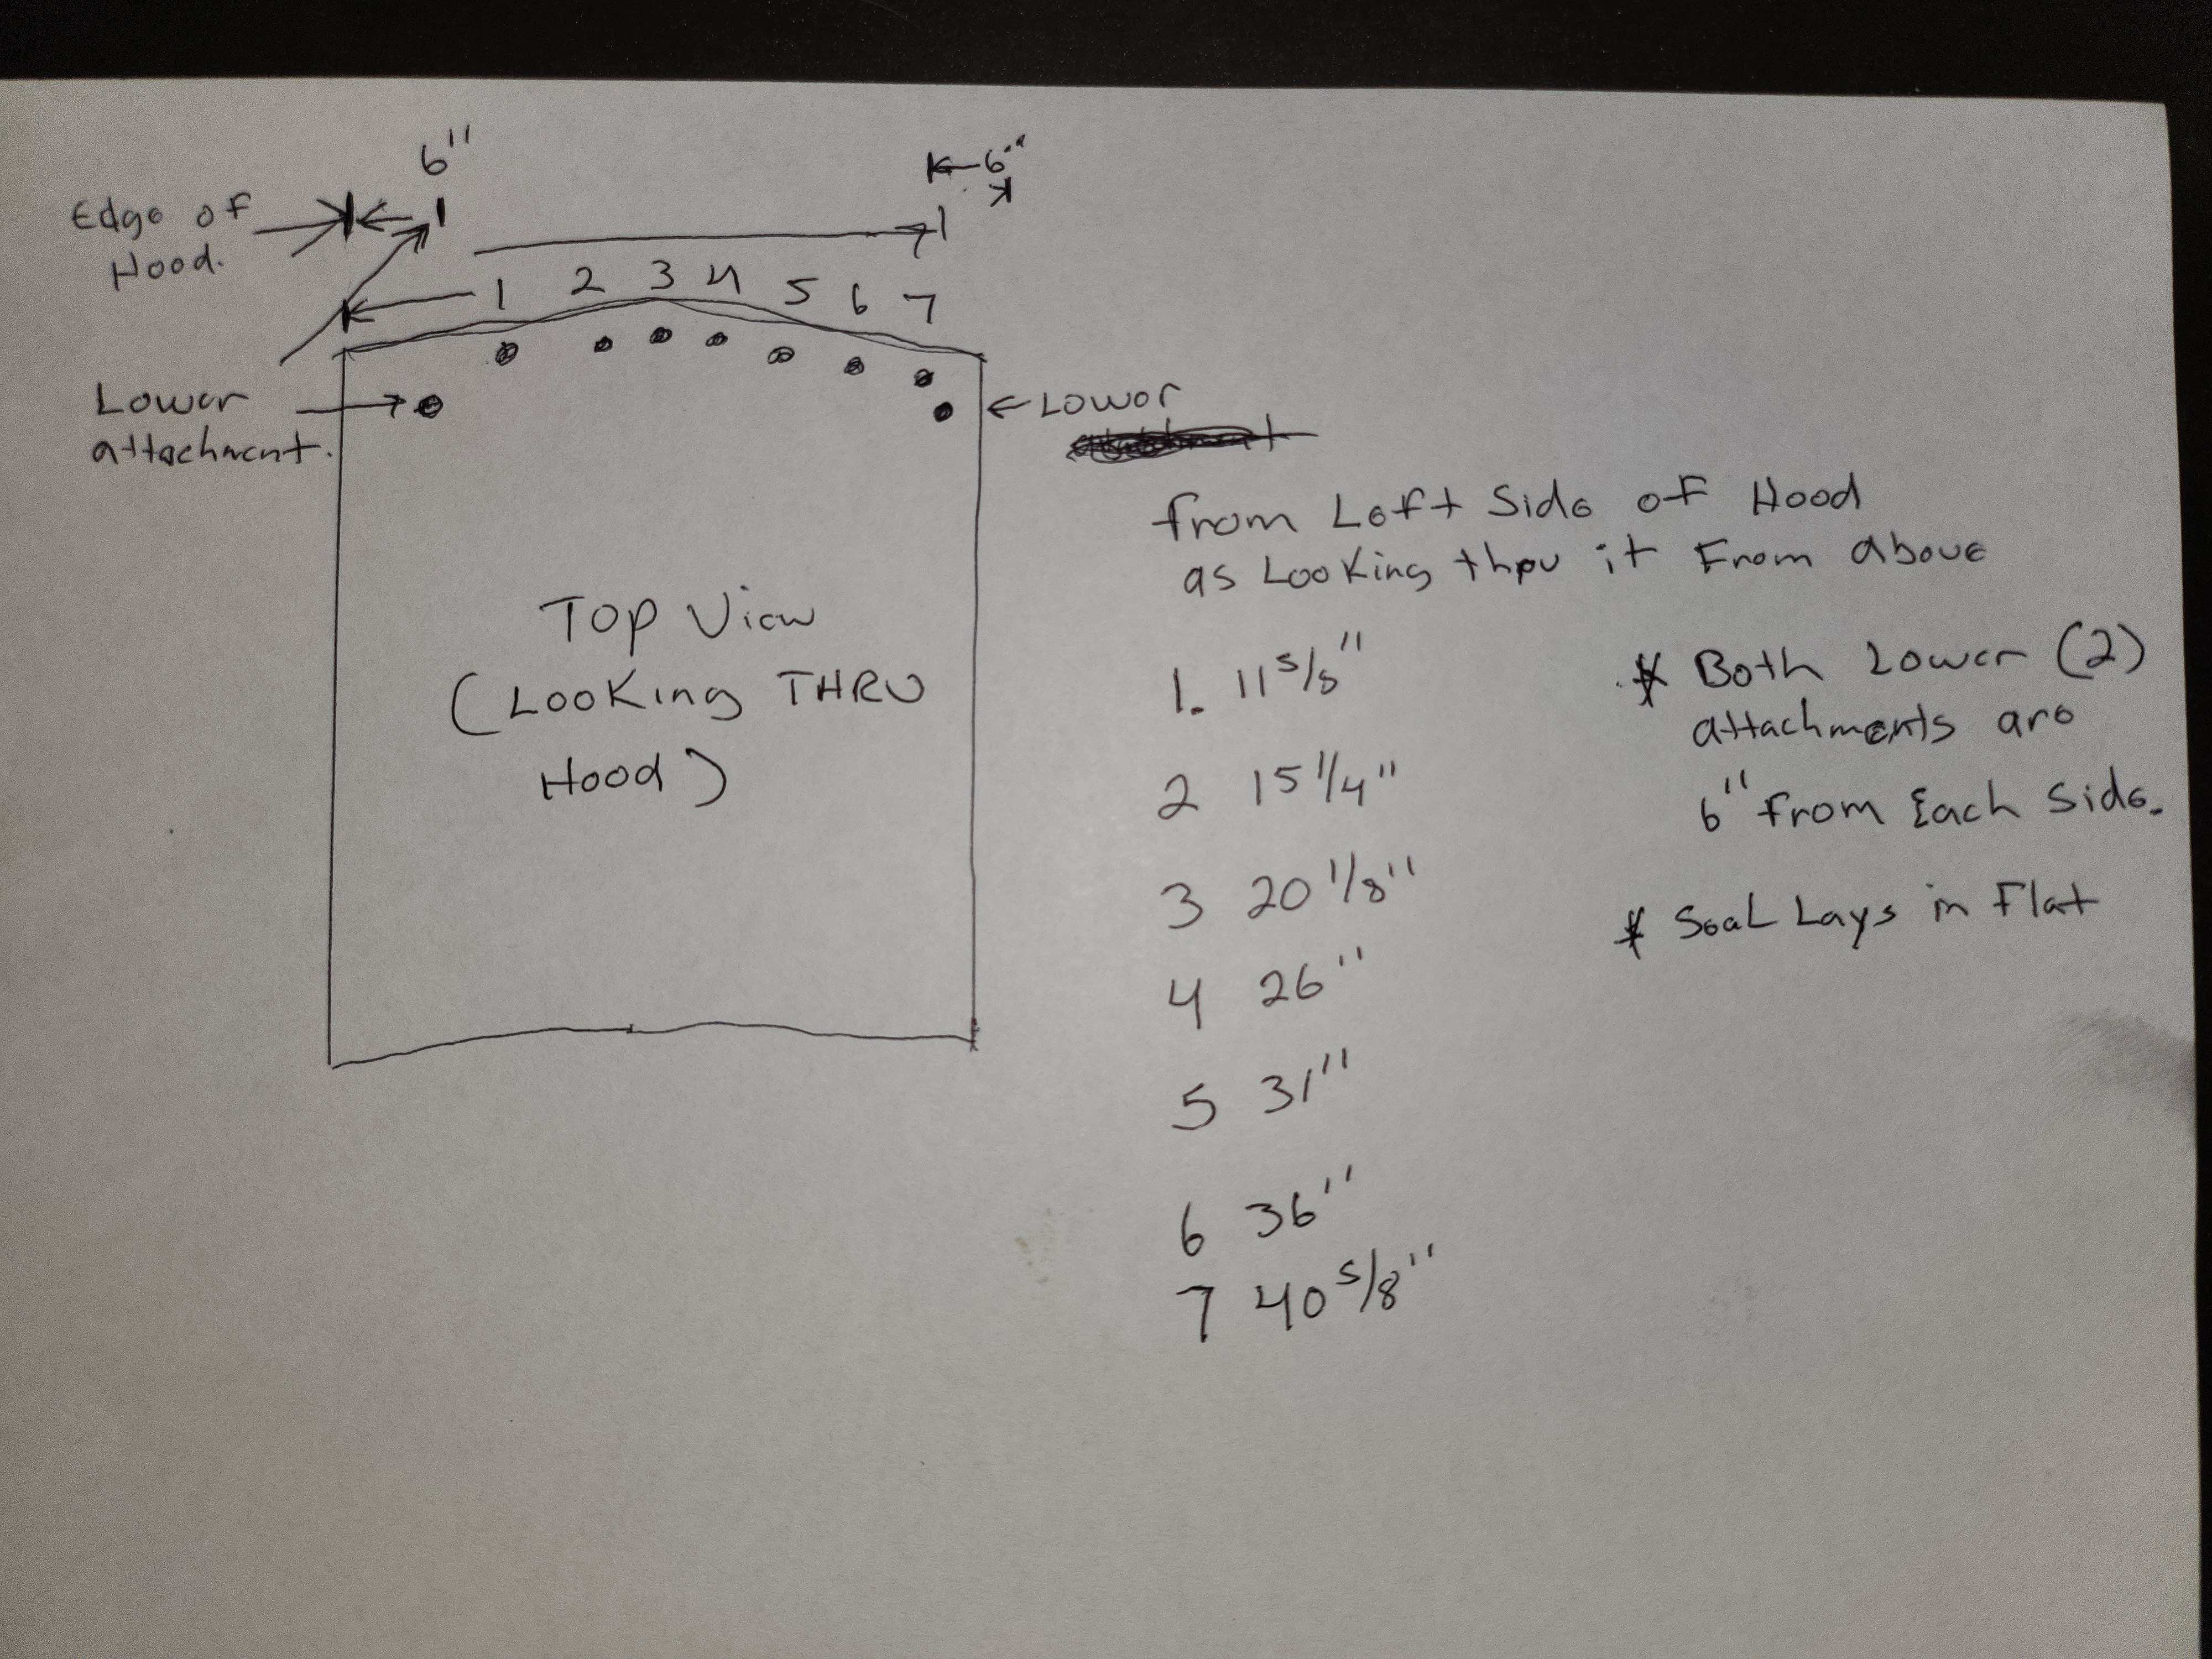 6"
6"
Edge of
Hood.
1 2 3 4 5 6 7
Lower
attachment.
Lower
from Left Side of Hood
as Looking thru it From Above
Top View
(Looking THRU
Hood)
1. 11 5/8"
2 15 1/4"
3 20 1/8"
4 26"
5 31"
6 36"
7 40 5/8"
* Both Lower (2)
attachments are
6" from Each Side.
* Seal Lays in Flat